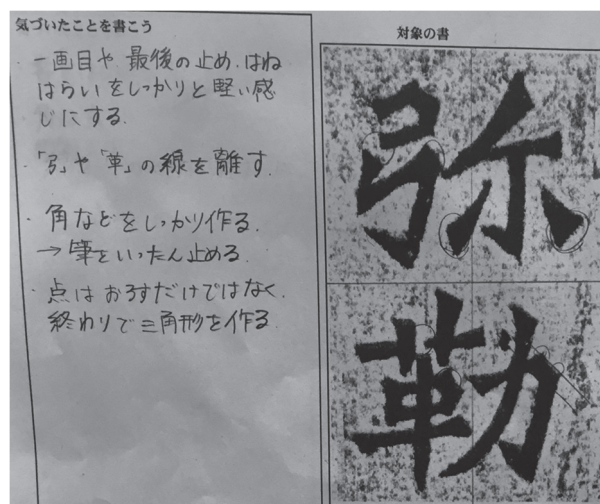 気づいたことを書こう
・一画目や、最後の止め、はね
はらいをしっかりと堅い感
じにする。
・「弓」や「革」の線を離す
・角などをしっかり作る。
→筆をいったん止める。
・点はおろすだけではなく、
終わりで三角形を作る
対象の書
弥
勒